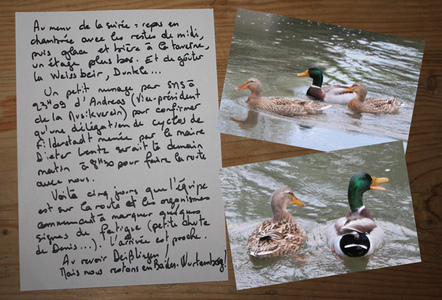 Au menu de la soirée : repas en
chambrée avec les restes de midi,
puis glace et bière à la taverne,
un étage plus bas. Et de goûter
la Weiss beir, Dunkle...
Un petit message par SMS à
23H09 d'Andreas (Vice-président
de la Musikverein) par confirmer
qu'une délégation de cycles de
Filderstadt menée par le maire
Dieter Lentz serait le demain
matin à 8H30 pour faire la route
avec nous.
Voilà cinq jours que l'équipe
est sur la route et les organismes
commencent à marquer quelques
signes de fatigue (petite chute
de Denis...). L'arrivée est proche.
Au revoir Deißlingen !
Mais nous restons en Baden-Wurtemberg!